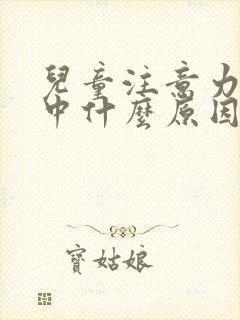 兒童注意力
中什麼原因
寶姑娘